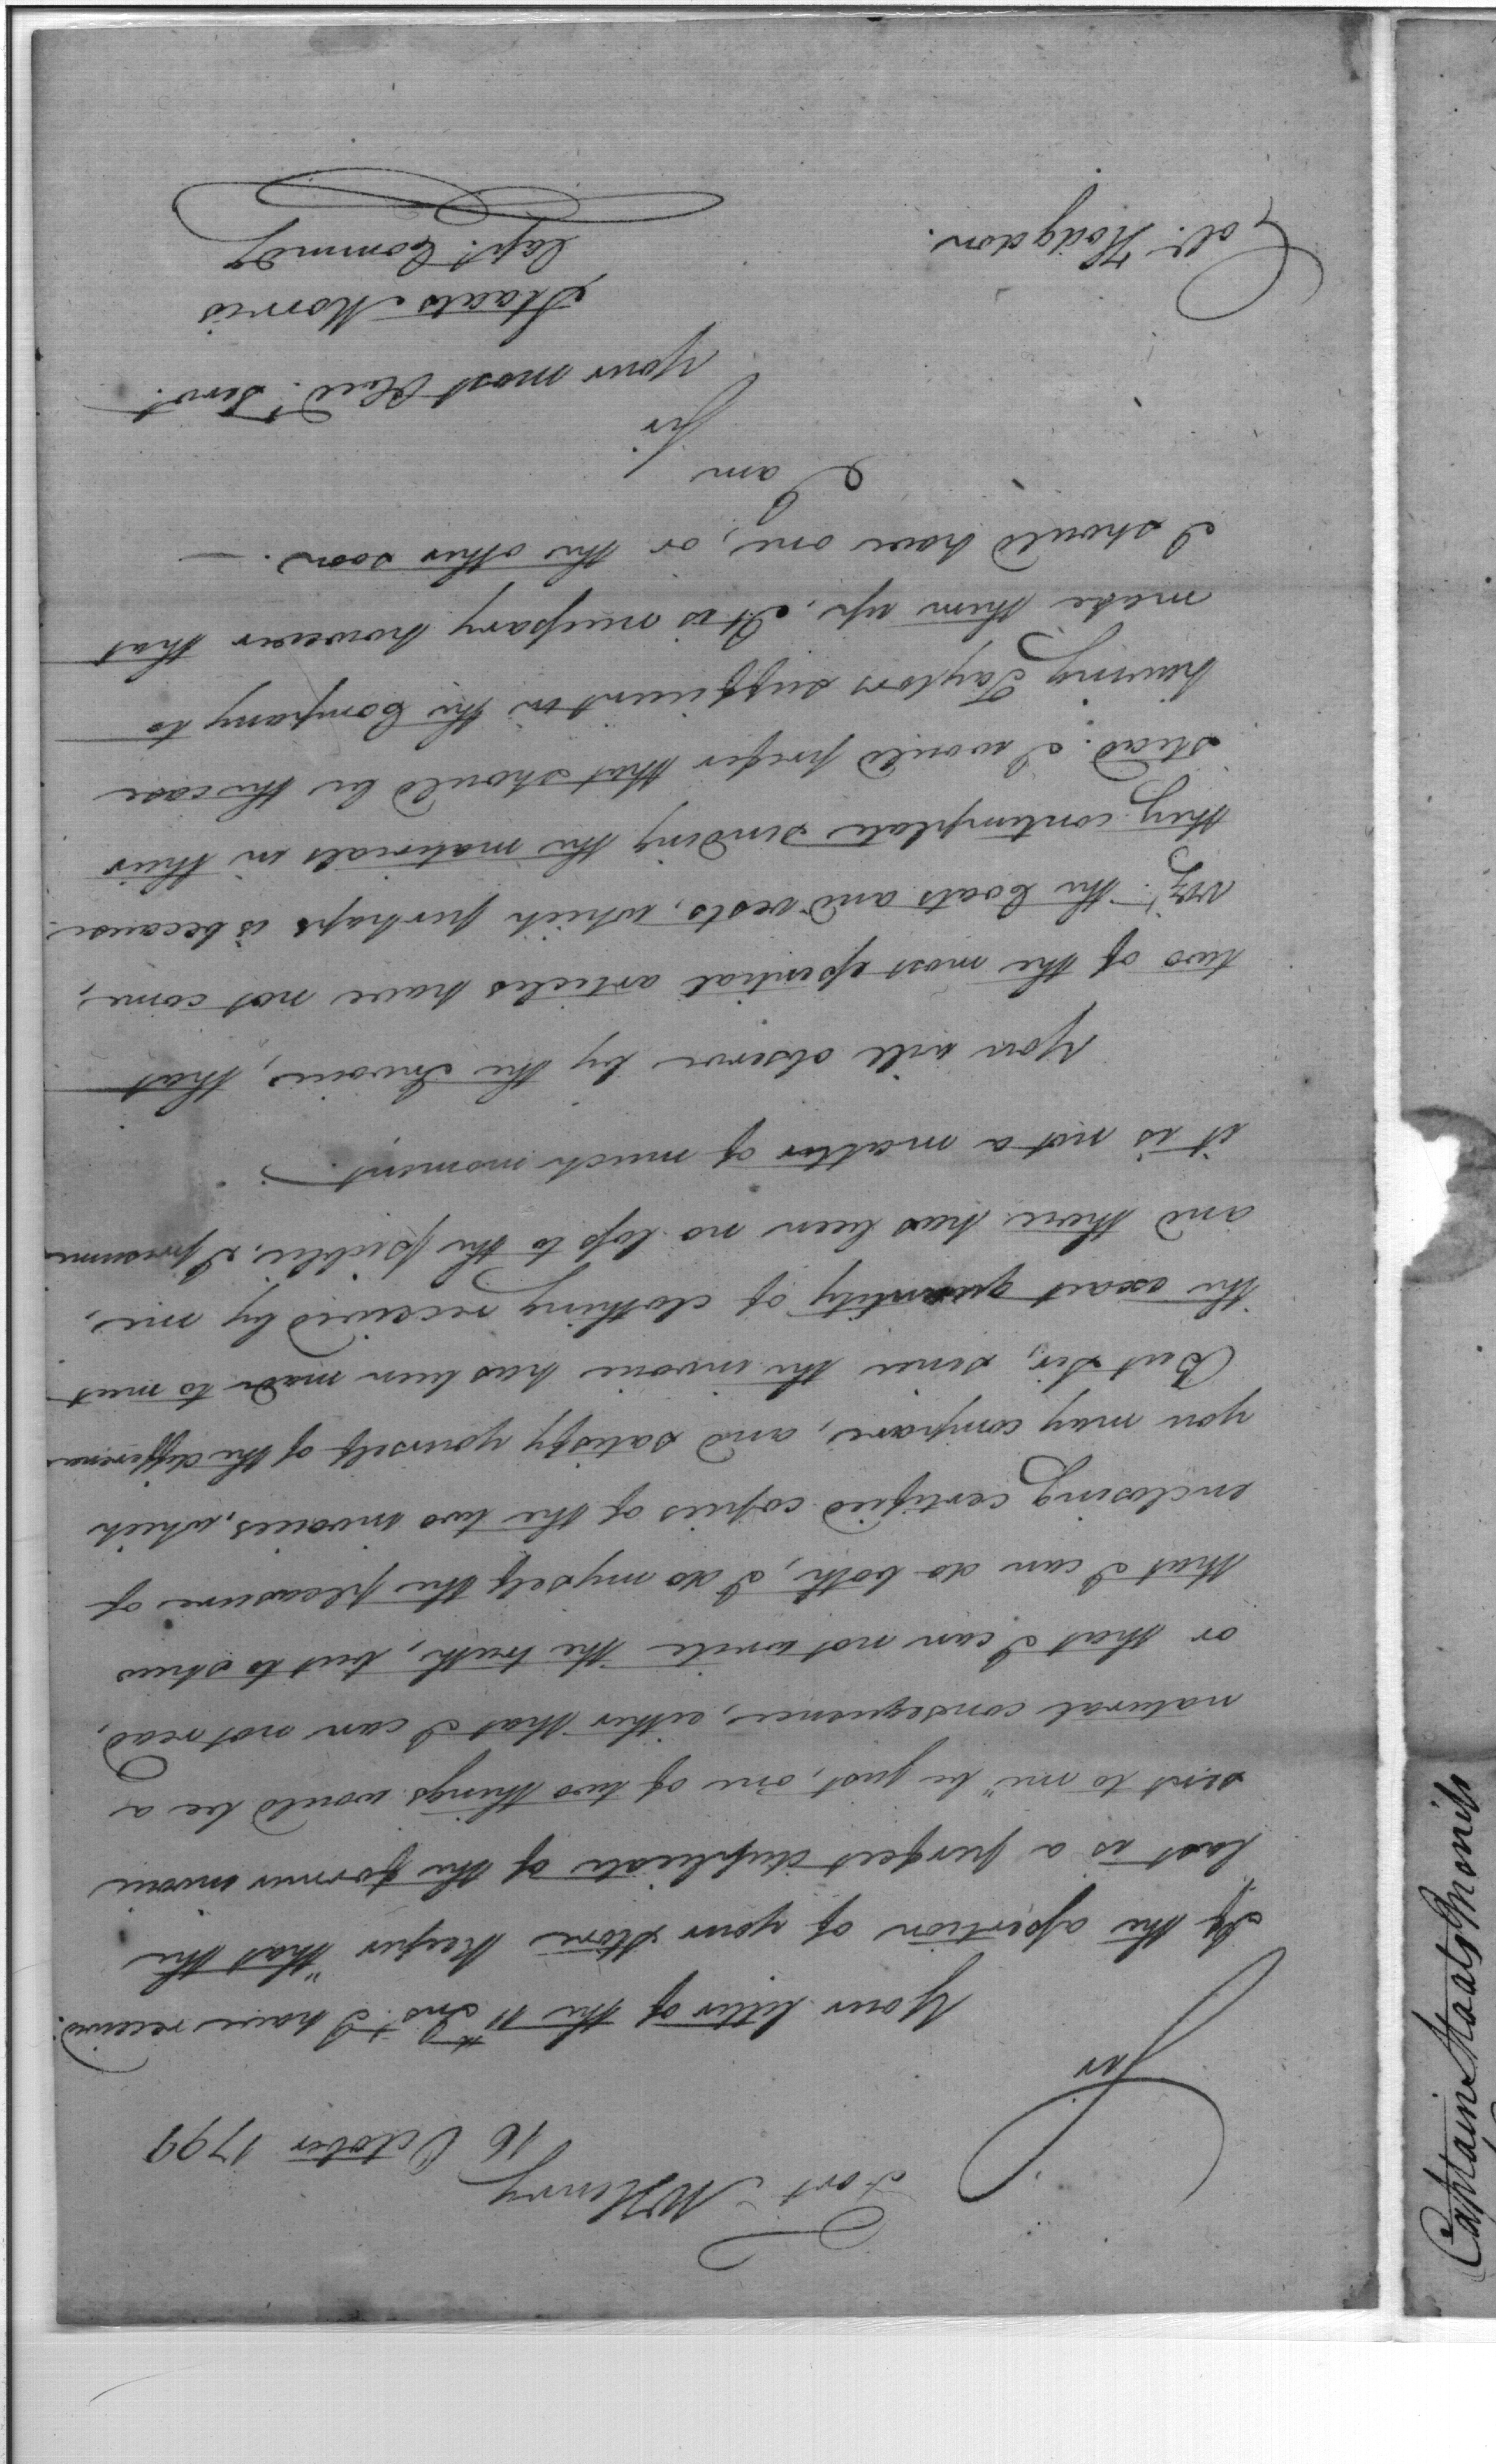 Fort McHenry
16 October 1799
Sir
Your letter of the 11th Inst. I have received.
If the assertion of your Store Keeper "that the
last is a perfect duplicate of the former invoice
sent to me" be just, one of two things would be a
natural consequence, either that I can not read,
or that I can not write the truth, but to shew
that I can do both, I do myself the pleasure of
enclosing certified copies of the two invoices, which
you may compare, and satisfy yourself of the difference
But Sir, since the invoice has been made to meet
the exact quantity of clothing received by me,
and there has been no loss to the public, I presume
it is not a matter of much moment.
You will observe by the Invoice, that
two of the most essential articles have not come,
viz: the Coats and vests, which perhaps is because
they contemplate sending the materials in their
stead. I would prefer that should be the case
having Taylors sufficient in the Company to
make them up. It is necessary however that
I should have one, or the other soon. —
I am
Sir
Your most Obed. Servt.
Staats Morris
Capt. Commdg
Col. Hodgdon.
Captain Staats Morris